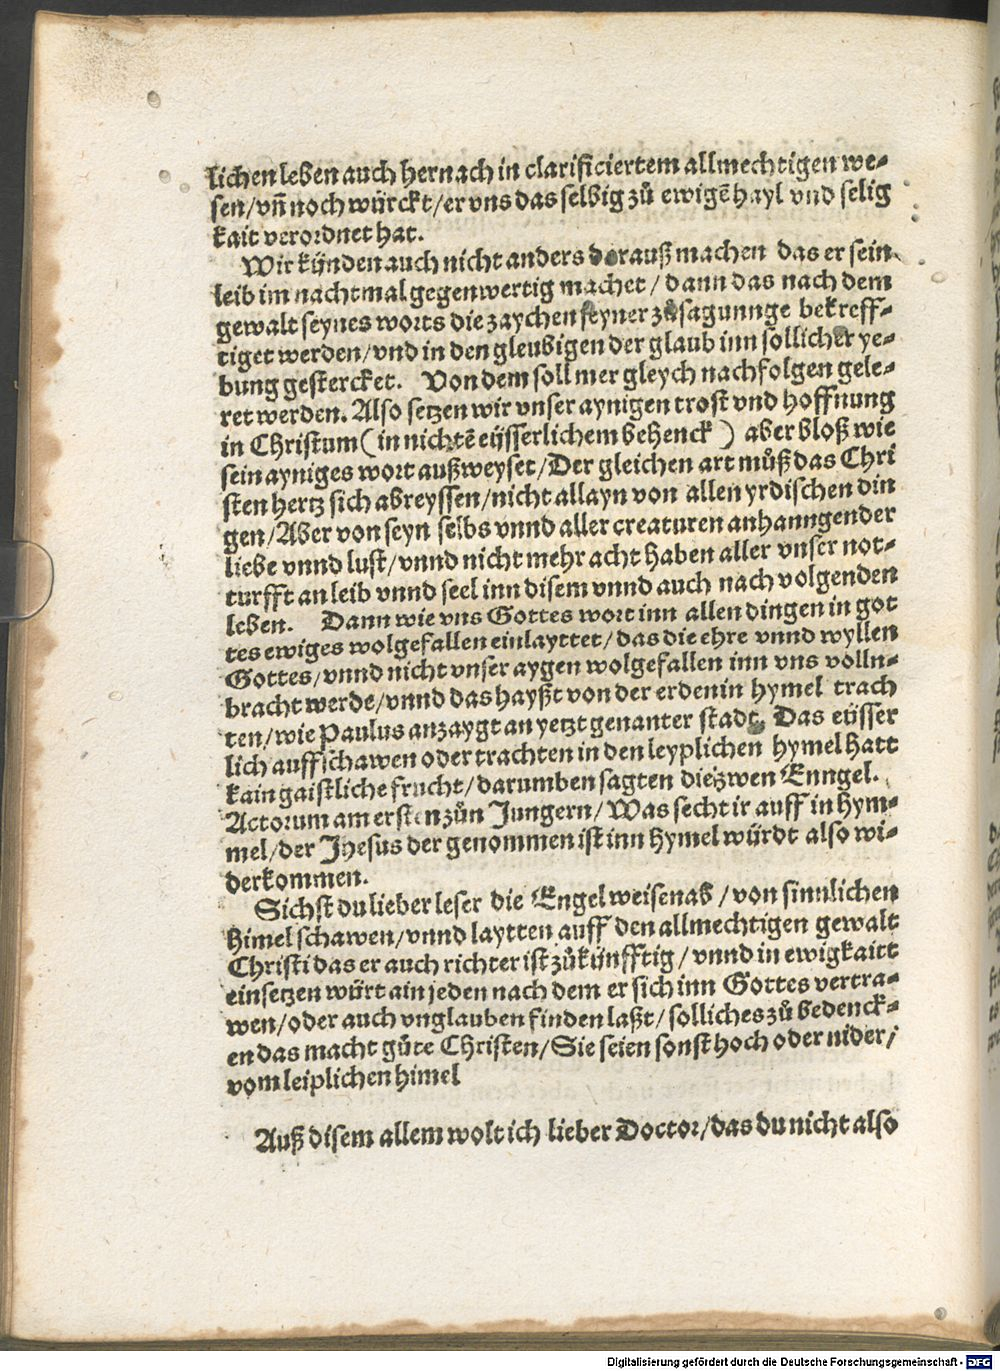 lichen leben auch hernach in clarificiertem allmechtigen we-
sen/vñ noch würckt/er vns das selbig zů ewigē hayl vnd selig
kait verordnet hat.
Wir künden auch nicht anders darauß machen das er sein
leib im nachtmal gegenwertig machet/dann das nach dem
gewalt seynes worts die zaychen seyner zůsagunnge bekreff-
tiget werden/vnd in den gleubigen der glaub inn sollicher ye-
bung gestercket. Von dem soll mer gleych nachfolgen gele-
ret werden. Also setzen wir vnser aynigen trost vnd hoffnung
in Christum (in nichtē eüsserlichem behenck) aber bloß wie
sein ayniges wort außweyset/Der gleichen art můß das Chri
sten hertz sich abreyssen/nicht allayn von allen yrdischen din
gen/Aber von seyn selbs vnnd aller creaturen anhanngender
liebe vnnd lust/vnnd nicht mehr acht haben aller vnser not-
turfft an leib vnnd seel inn disem vnnd auch nach volgenden
leben. Dann wie vns Gottes wort inn allen dingen in got
tes ewiges wolgefallen einlayttet/das die ehre vnnd wyllen
Gottes/vnnd nicht vnser aygen wolgefallen inn vns volln-
bracht werde/vnnd das hayßt von der erden in hymel trach
ten/wie Paulus anzaygt an yetzt genanter stadt. Das eüsser
lich auffschawen oder trachten in den leyplichen hymel hatt
kain gaistliche frucht/darumben sagten die zwen Enngel.
Actorum am ersten zůn Jungern/Was secht ir auff in hym-
mel/der Jhesus der genommen ist inn hymel würdt also wi-
derkommen.
Sichst du lieber leser die Engel weisen ab/von sinnlichen
himel schawen/vnnd laytten auff den allmechtigen gewalt
Christi das er auch richter ist zůkünfftig/vnnd in ewigkaitt
einsetzen würt ain jeden nach dem er sich inn Gottes vertra-
wen/oder auch vnglauben finden laßt/solliches zů bedenck-
en das macht gůte Christen/Sie seien sonst hoch oder nider/
vom leiplichen himel
Auß disem allem wolt ich lieber Doctor/das du nicht also
Digitalisierung gefördert durch die Deutsche Forschungsgemeinschaft - DFG